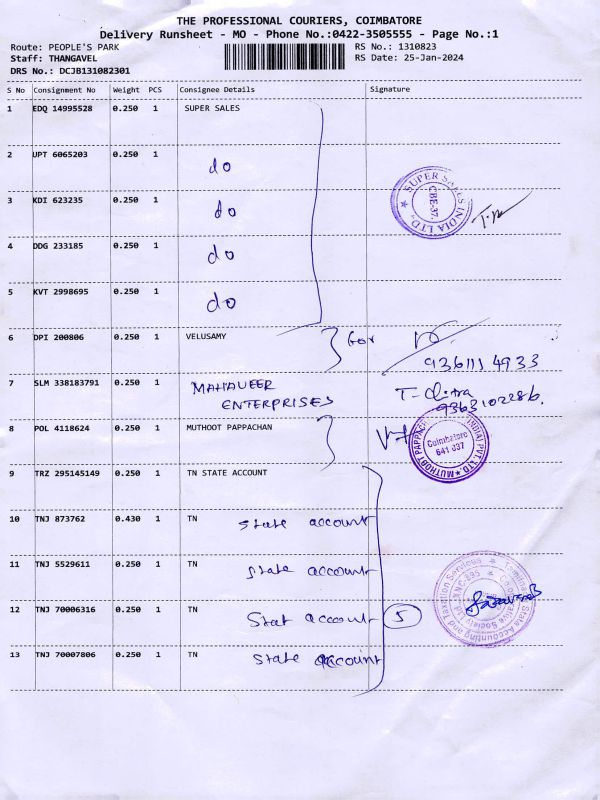 THE PROFESSIONAL COURIERS, COIMBATORE
Delivery Runsheet - MO - Phone No.:0422-3505555 - Page No.:1
Route: PEOPLE'S PARK
RS No.: 1310823
Staff: THANGAVEL
RS Date: 25-Jan-2024
DRS No.: DCJB131082301
S No Consignment No Weight PCS Consignee Details Signature
1 EDQ 14995528 0.250 1 SUPER SALES
2 UPT 6065203 0.250 1 do
3 KDI 623235 0.250 1 do
SUPER SALES INDIA LTD. CBE-37
4 DDG 233185 0.250 1 do
5 KVT 2998695 0.250 1 do
6 DPI 200806 0.250 1 VELUSAMY
9361114933
7 SLM 338183791 0.250 1 MAHAVEER ENTERPRISES T-Chitra
9363102286
8 POL 4118624 0.250 1 MUTHOOT PAPPACHAN
MUTHOOT PAPPACHAN (INDIA) PVT. LTD Coimbatore 641 037
9 TRZ 295145149 0.250 1 TN STATE ACCOUNT
10 TNJ 873762 0.430 1 TN state account
11 TNJ 5529611 0.250 1 TN state account
12 TNJ 70006316 0.250 1 TN Stat account 5
State Accounting and Taxation Services
13 TNJ 70007806 0.250 1 TN state account